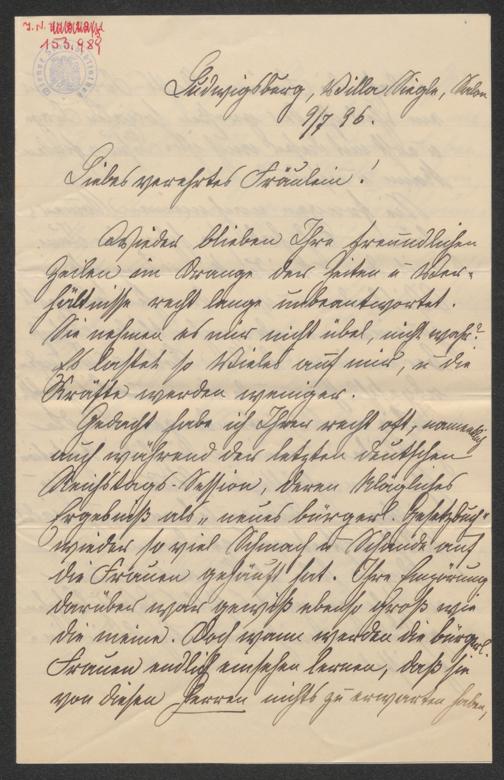 I. N.
153.989
Ludwigsburg, Villa Siegle, Salon
9/7 96.
Liebes verehrtes Fräulein!
Wieder blieben Ihre freundlichen
Zeilen im Drange der Zeiten u Ver-
hältnisse recht lange unbeantwortet.
Sie nehmen es mir nicht übel, nicht wahr?
Es lastet so Vieles auf mir, u die
Kräfte werden weniger.
Gedacht habe ich Ihrer recht oft, namentlich
auch während der letzten deutschen
Reichstags-Session, deren klägliches
Ergebniß als „neues bürgerl. Gesetzbuch"
wieder so viel Schmach u Schande auf
die Frauen gehäuft hat. Ihre Empörung
darüber war gewiß ebenso groß wie
die meine. Doch wann werden die bürgerl.
Frauen endlich einsehen lernen, daß sie
von diesen Herren nichts zu erwarten haben,